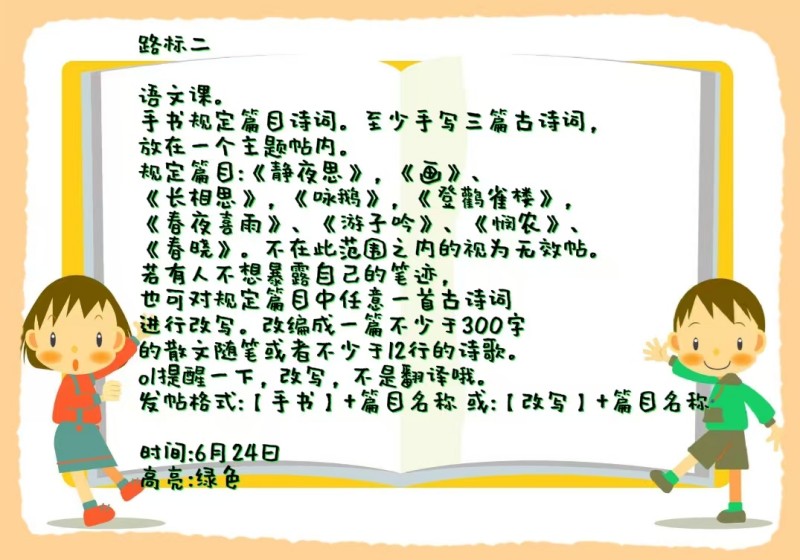 路标二
语文课。
手书规定篇目诗词。至少手写三篇古诗词，
放在一个主题帖内。
规定篇目:《静夜思》，《画》、
《长相思》，《咏鹅》，《登鹳雀楼》，
《春夜喜雨》、《游子吟》、《悯农》、
《春晓》。不在此范围之内的视为无效帖。
若有人不想暴露自己的笔迹，
也可对规定篇目中任意一首古诗词
进行改写。改编成一篇不少于300字
的散文随笔或者不少于12行的诗歌。
ol提醒一下，改写，不是翻译哦。
发帖格式:【手书】+篇目名称 或:【改写】+篇目名称
时间:6月24日
高亮:绿色